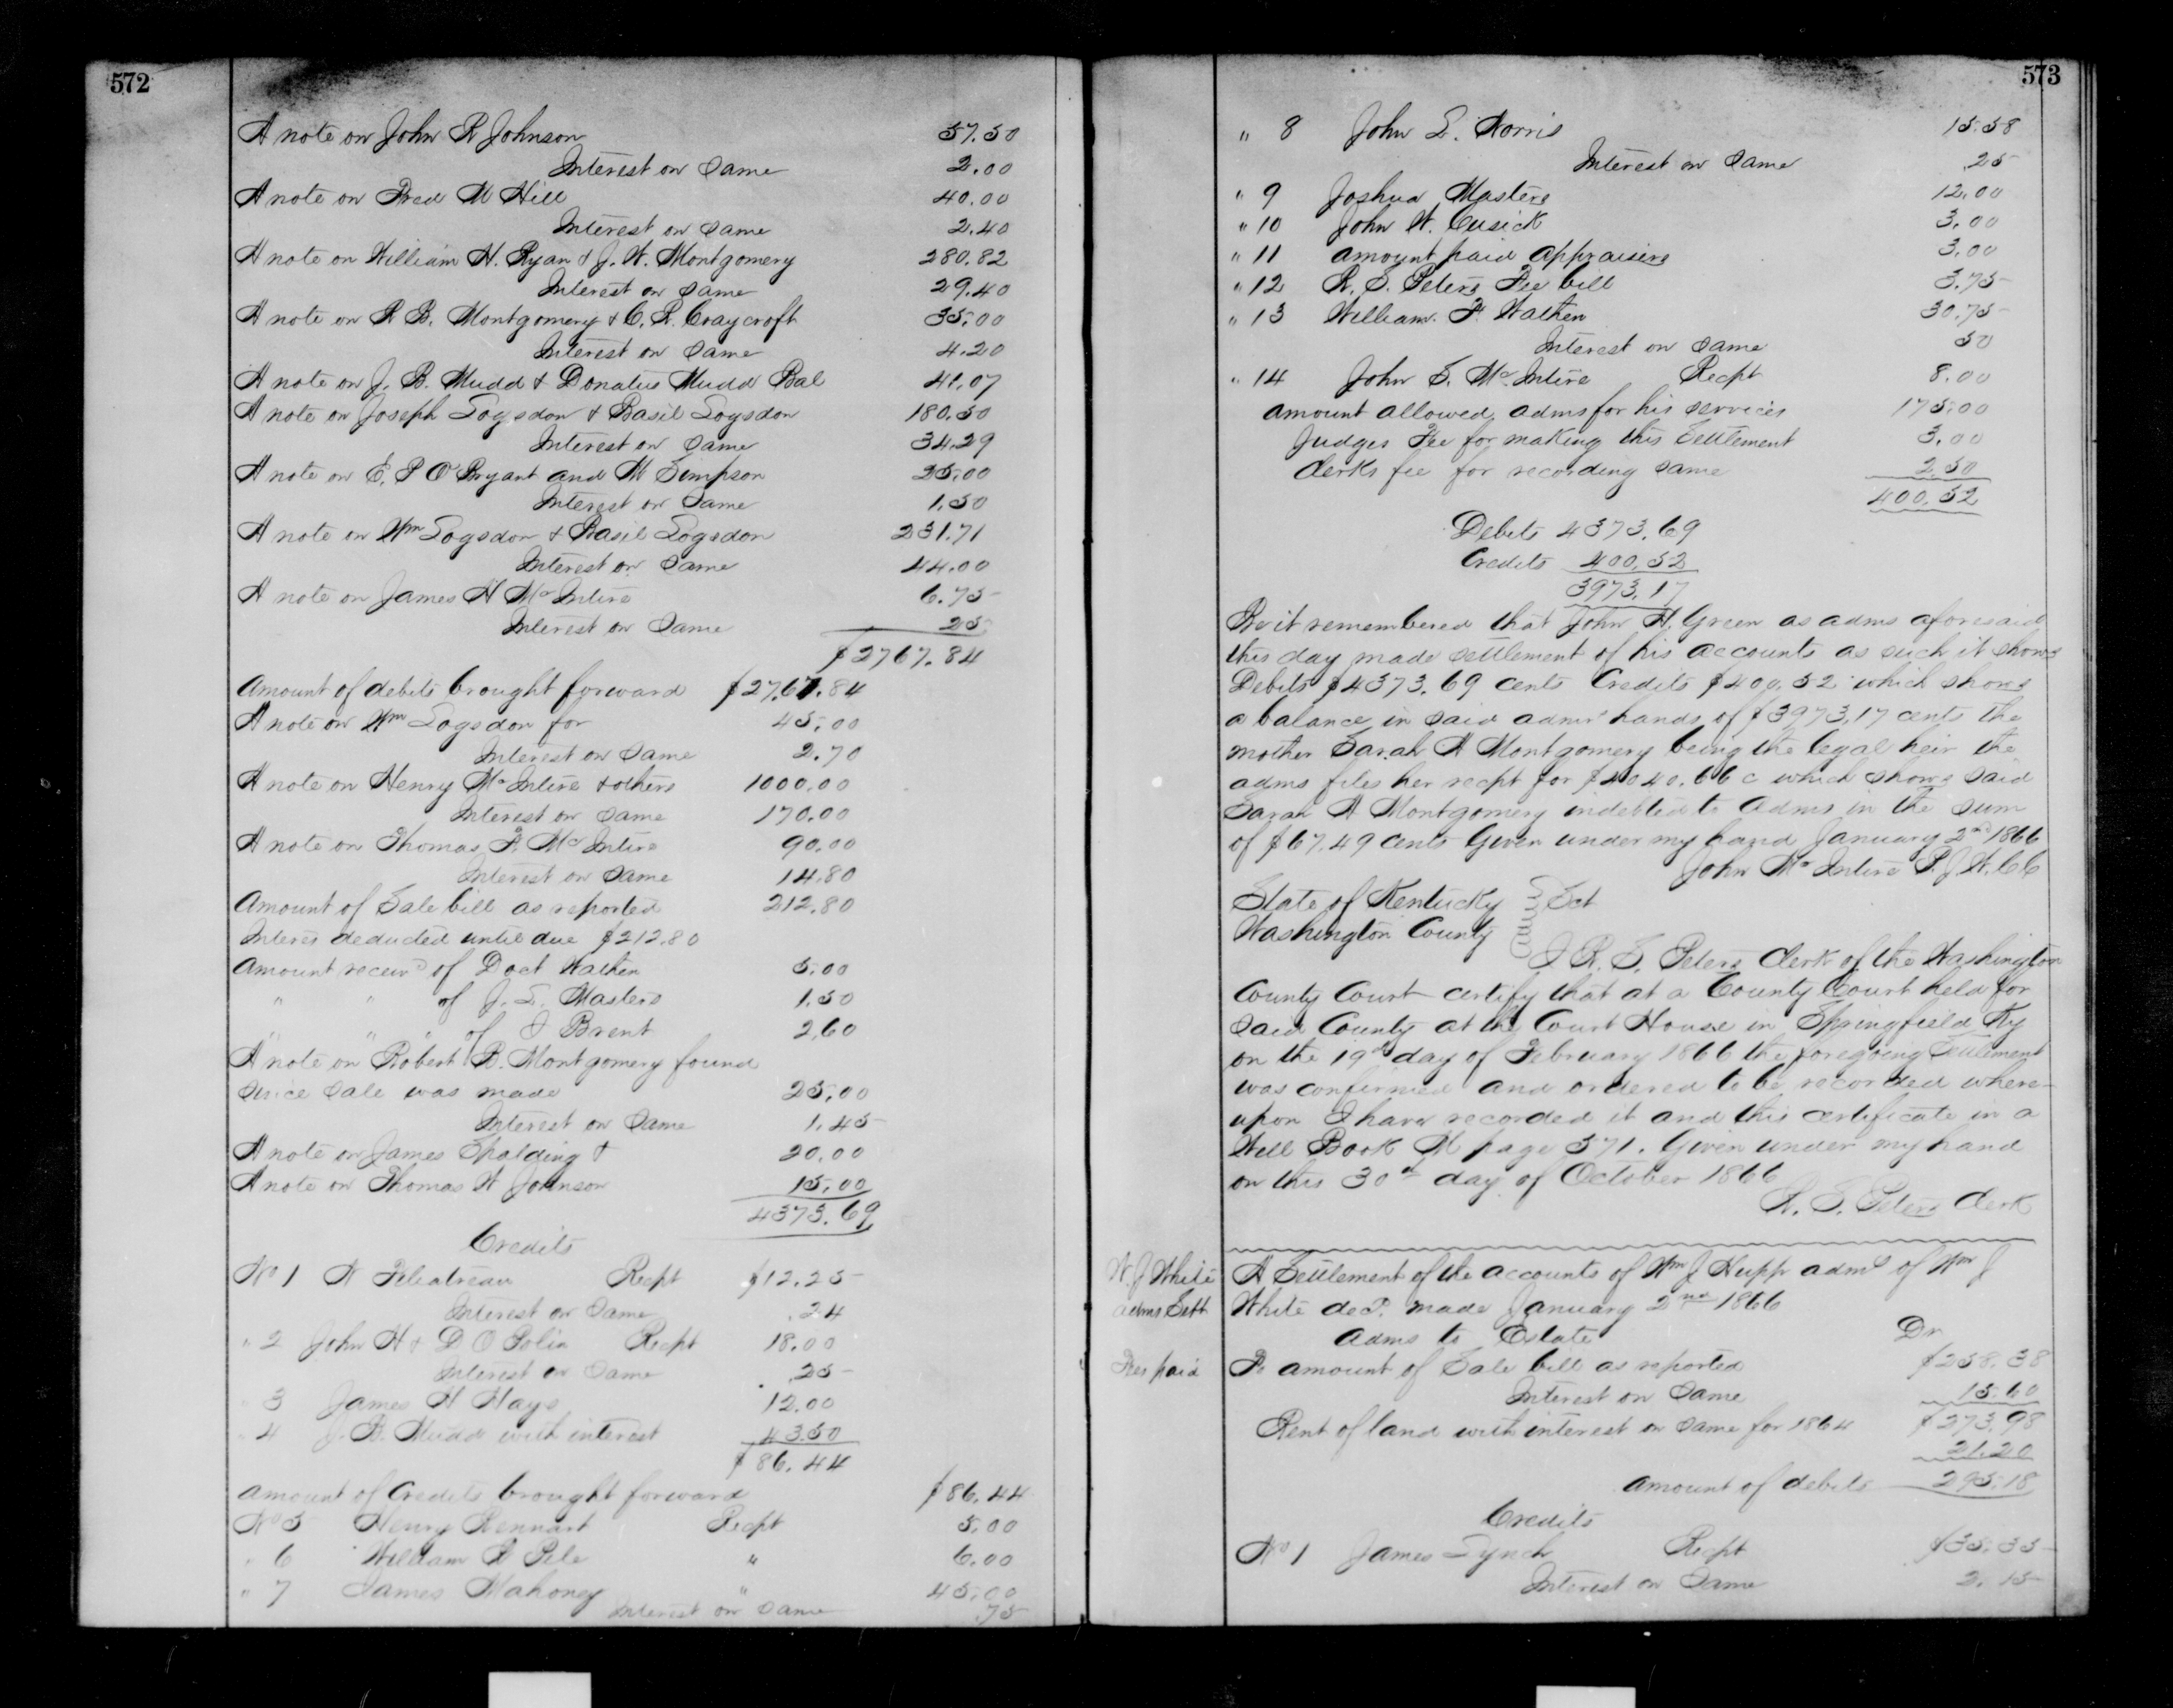 572
A note on John R Johnson 57.50
Interest on Same 2.00
A note on Fred M Hill 40.00
Interest on Same 2.40
A note on William H. Ryan & J. W. Montgomery 280.82
Interest on Same 29.40
A note on R B. Montgomery & C. R. Craycroft 35.00
Interest on Same 4.20
A note on J. B. Mudd & Donatus Mudd Bal 41.07
A note on Joseph Logsdon & Basil Logsdon 180.50
Interest on Same 34.29
A note on E. P O'Bryant and M Simpson 25.00
Interest on Same 1.50
A note on Wm Logsdon & Basil Logsdon 231.71
Interest on Same 44.00
A note on James H McIntire 6.75
Interest on Same 25
$2767.84
Amount of debits brought forward $2767.84
A note on Wm Logsdon for 45.00
Interest on Same 2.70
A note on Henry McIntire & others 1000.00
Interest on Same 170.00
A note on Thomas F. McIntire 90.00
Interest on Same 14.80
Amount of Sale bill as reported 212.80
Interes deducted until due $212.80
Amount receivd of Doct Wathen 5.00
" " of J. L. Masters 1.50
" " " of J Brent 2.60
A note on Robert B. Montgomery found
since Sale was made 25.00
Interest on Same 1.45
A note on James Spalding & 20.00
A note on Thomas W Johnson 15.00
4373.69
Credits
No 1 W Fleatreau Recpt $12.25
Interest on Same .24
" 2 John H & D O Polin Recpt 18.00
Interest on Same .25
" 3 James H Hays 12.00
" 4 J. B. Mudd with interest 43.50
$86.44
Amount of Credits brought forward $86.44
No 5 Henry Rennart Recpt 5.00
" 6 William B Pile " 6.00
" 7 James Mahoney " 45.00
Interest on Same .75
573
" 8 John L. Norris 15.58
Interest on Same .25
" 9 Joshua Masters 12.00
" 10 John W. Cusick 3.00
" 11 amount paid appraisers 3.00
" 12 R. S. Peters Fee bill 3.75
" 13 William. F. Wathen 30.75
Interest on Same 50
" 14 John S. McIntire Recpt 8.00
amount allowed adms for his services 175.00
Judges Fee for making this Settlement 3.00
Clerks fee for recording Same 2.50
400.52
Debits 4373.69
Credits 400.52
3973.17
Be it remembered that John H. Green as adms aforesaid
this day made settlement of his accounts as such it shows
Debits $4373.69 cents Credits $400.52 which shows
a balance in said admrs hands of $3973.17 cents the
mother Sarah A Montgomery being the legal heir the
adms files her recpt for $4040.66 c which shows said
Sarah A Montgomery indebted to adms in the sum
of $67.49 cents Given under my hand January 2nd 1866
John McIntire P. J. W. C C
State of Kentucky } Sct
Washington County }
I R. S. Peters Clerk of the Washington
County Court certify that at a County Court held for
said County at the Court House in Springfield Ky
on the 19th day of February 1866 the foregoing Settlement
was confirmed and ordered to be recorded where-
upon I have recorded it and this certificate in a
Will Book M page 571. Given under my hand
on this 30th day of October 1866
R. S. Peters Clerk
W. J White
adms Sett
A Settlement of the accounts of Wm J Hupp admr of Wm J
White decd. made January 2nd 1866
Adms to Estate Dr
Fes paid
To amount of Sale bill as reported $258.38
Interest on Same 15.60
$273.98
Rent of land with interest on Same for 1864 21.20
amount of debits 295.18
Credits
No 1 James Lynch Recpt $35.35
Interest on Same 2.15